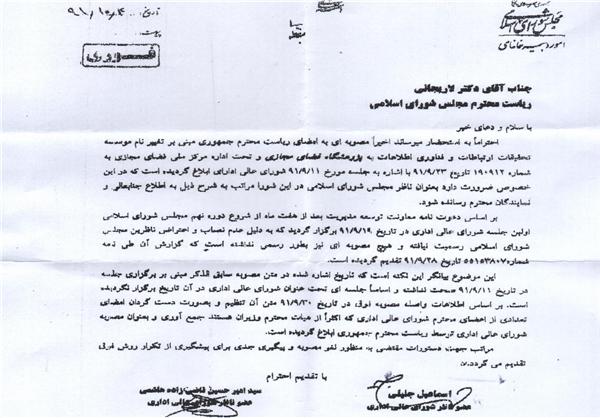 تاریخ: ۹۱/۱۰/۰۴
مجلس شورای اسلامی
فـــوری
جناب آقای دکتر لاریجانی
ریاست محترم مجلس شورای اسلامی
با سلام و دعای خیر
احتراماً به استحضار میرساند اخیراً مصوبه ای به امضای ریاست محترم جمهوری مبنی بر تغییر نام موسسه
تحقیقات ارتباطات و فناوری اطلاعات به پژوهشگاه فضای مجازی و تحت اداره مرکز ملی فضای مجازی به
شماره ۱۹۰۹۱۲ تاریخ ۹۱/۹/۲۳ با اشاره به جلسه مورخ ۹۱/۹/۱۱ شورای عالی اداری ابلاغ گردیده است که در این
خصوص ضرورت دارد بعنوان ناظر مجلس شورای اسلامی در این شورا مراتب به شرح ذیل به اطلاع جنابعالی و
نمایندگان محترم رسانده شود.
بر اساس دعوت نامه معاونت توسعه مدیریت بعد از هفت ماه از شروع دوره نهم مجلس شورای اسلامی
اولین جلسه شورای عالی اداری در تاریخ ۹۱/۹/۱۹ برگزار گردید که به دلیل عدم نصاب و اعتراض ناظرین مجلس
شورای اسلامی رسمیت نیافته و هیچ مصوبه ای نیز بطور رسمی نداشته است که گزارش آن طی نامه
شماره ۵۵۱۵۳۸۰۷ تاریخ ۹۱/۹/۲۸ تقدیم گردیده است.
این موضوع بیانگر این نکته است که تاریخ اشاره شده در متن مصوبه سابق الذکر مبنی بر برگزاری جلسه
در تاریخ ۹۱/۹/۱۱ صحت نداشته و اساساً جلسه ای تحت عنوان شورای عالی اداری در آن تاریخ برگزار نگردیده
است. بر اساس اطلاعات واصله مصوبه فوق در تاریخ ۹۱/۹/۲۰ متن آن تنظیم و بصورت دست گردان امضای
تعدادی از اعضای محترم شورای عالی اداری که اکثراً از هیات محترم وزیران هستند جمع آوری و بعنوان مصوبه
شورای عالی اداری توسط ریاست محترم جمهوری ابلاغ گردیده است.
مراتب جهت دستورات مقتضی به منظور لغو مصوبه و پیگیری جدی برای پیشگیری از تکرار روش فوق
تقدیم می گردد.
با تقدیم احترام
اسماعیل جلیلی
عضو ناظر شورای عالی اداری
سید امیر حسین قاضی زاده هاشمی
عضو ناظر شورای عالی اداری